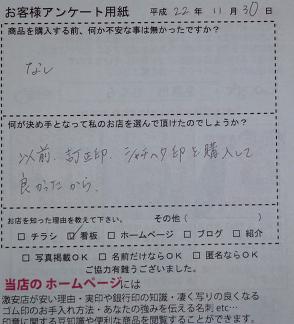 お客様アンケート用紙 平成 22年 11月 30日
商品を購入する前、何か不安な事は無かったですか?
なし
何が決め手となって私のお店を選んで頂けたのでしょうか?
以前、訂正印、シャチハタ印を購入して
良かったから、
お店を知った理由を教えて下さい。 その他( )
□ チラシ ☑ 看板 □ ホームページ □ ブログ □ 紹介
□ 写真掲載OK □ 名前だけならOK □ 匿名ならOK
ご協力有難うございました。
当店のホームページには
激安店が安い理由・実印や銀行印の知識・凄く写りの良くなる
ゴム印のお手入れ方法・あなたの強みを伝える名刺 etc…
印章に関する豆知識や便利な商品を閲覧することができます。